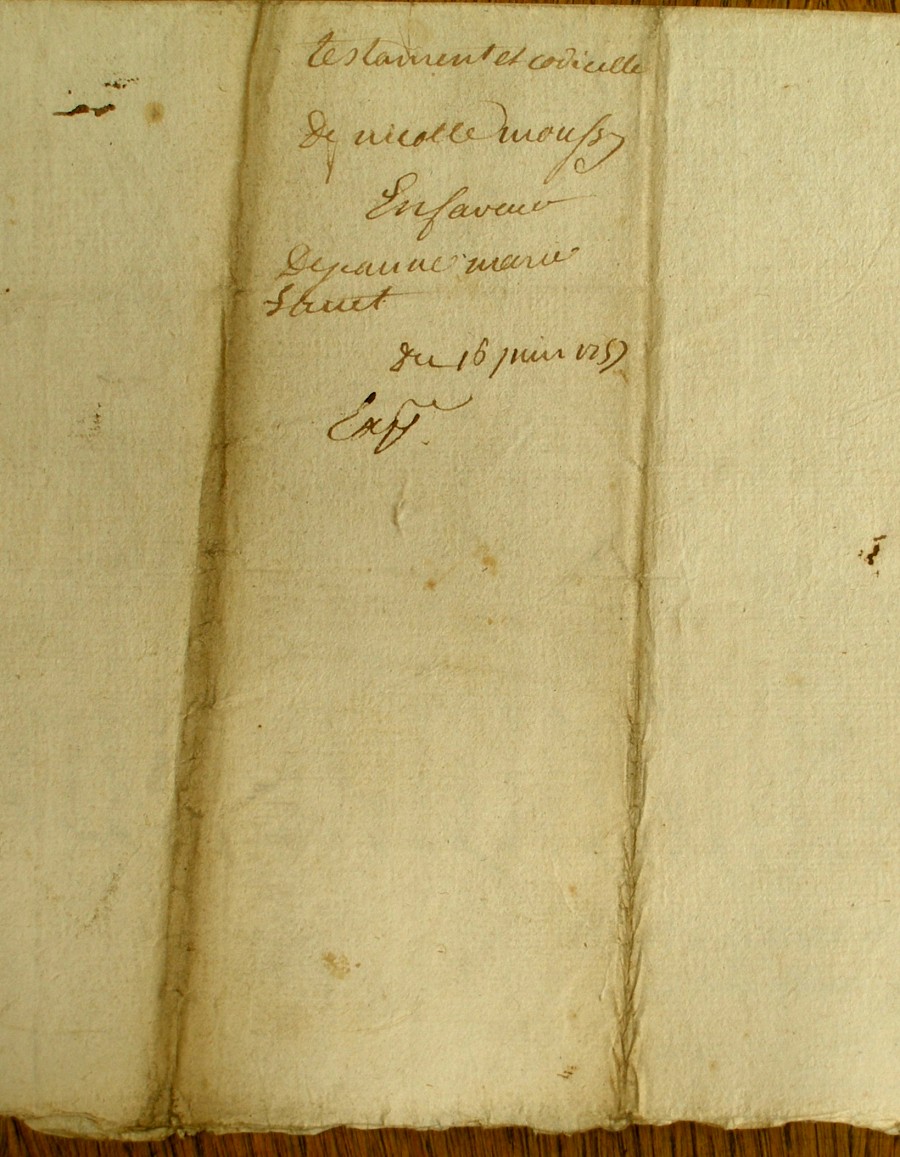 testament et codicille
De nicolle moussy
En faveur
De jeanne marie

du 16 juin 1757